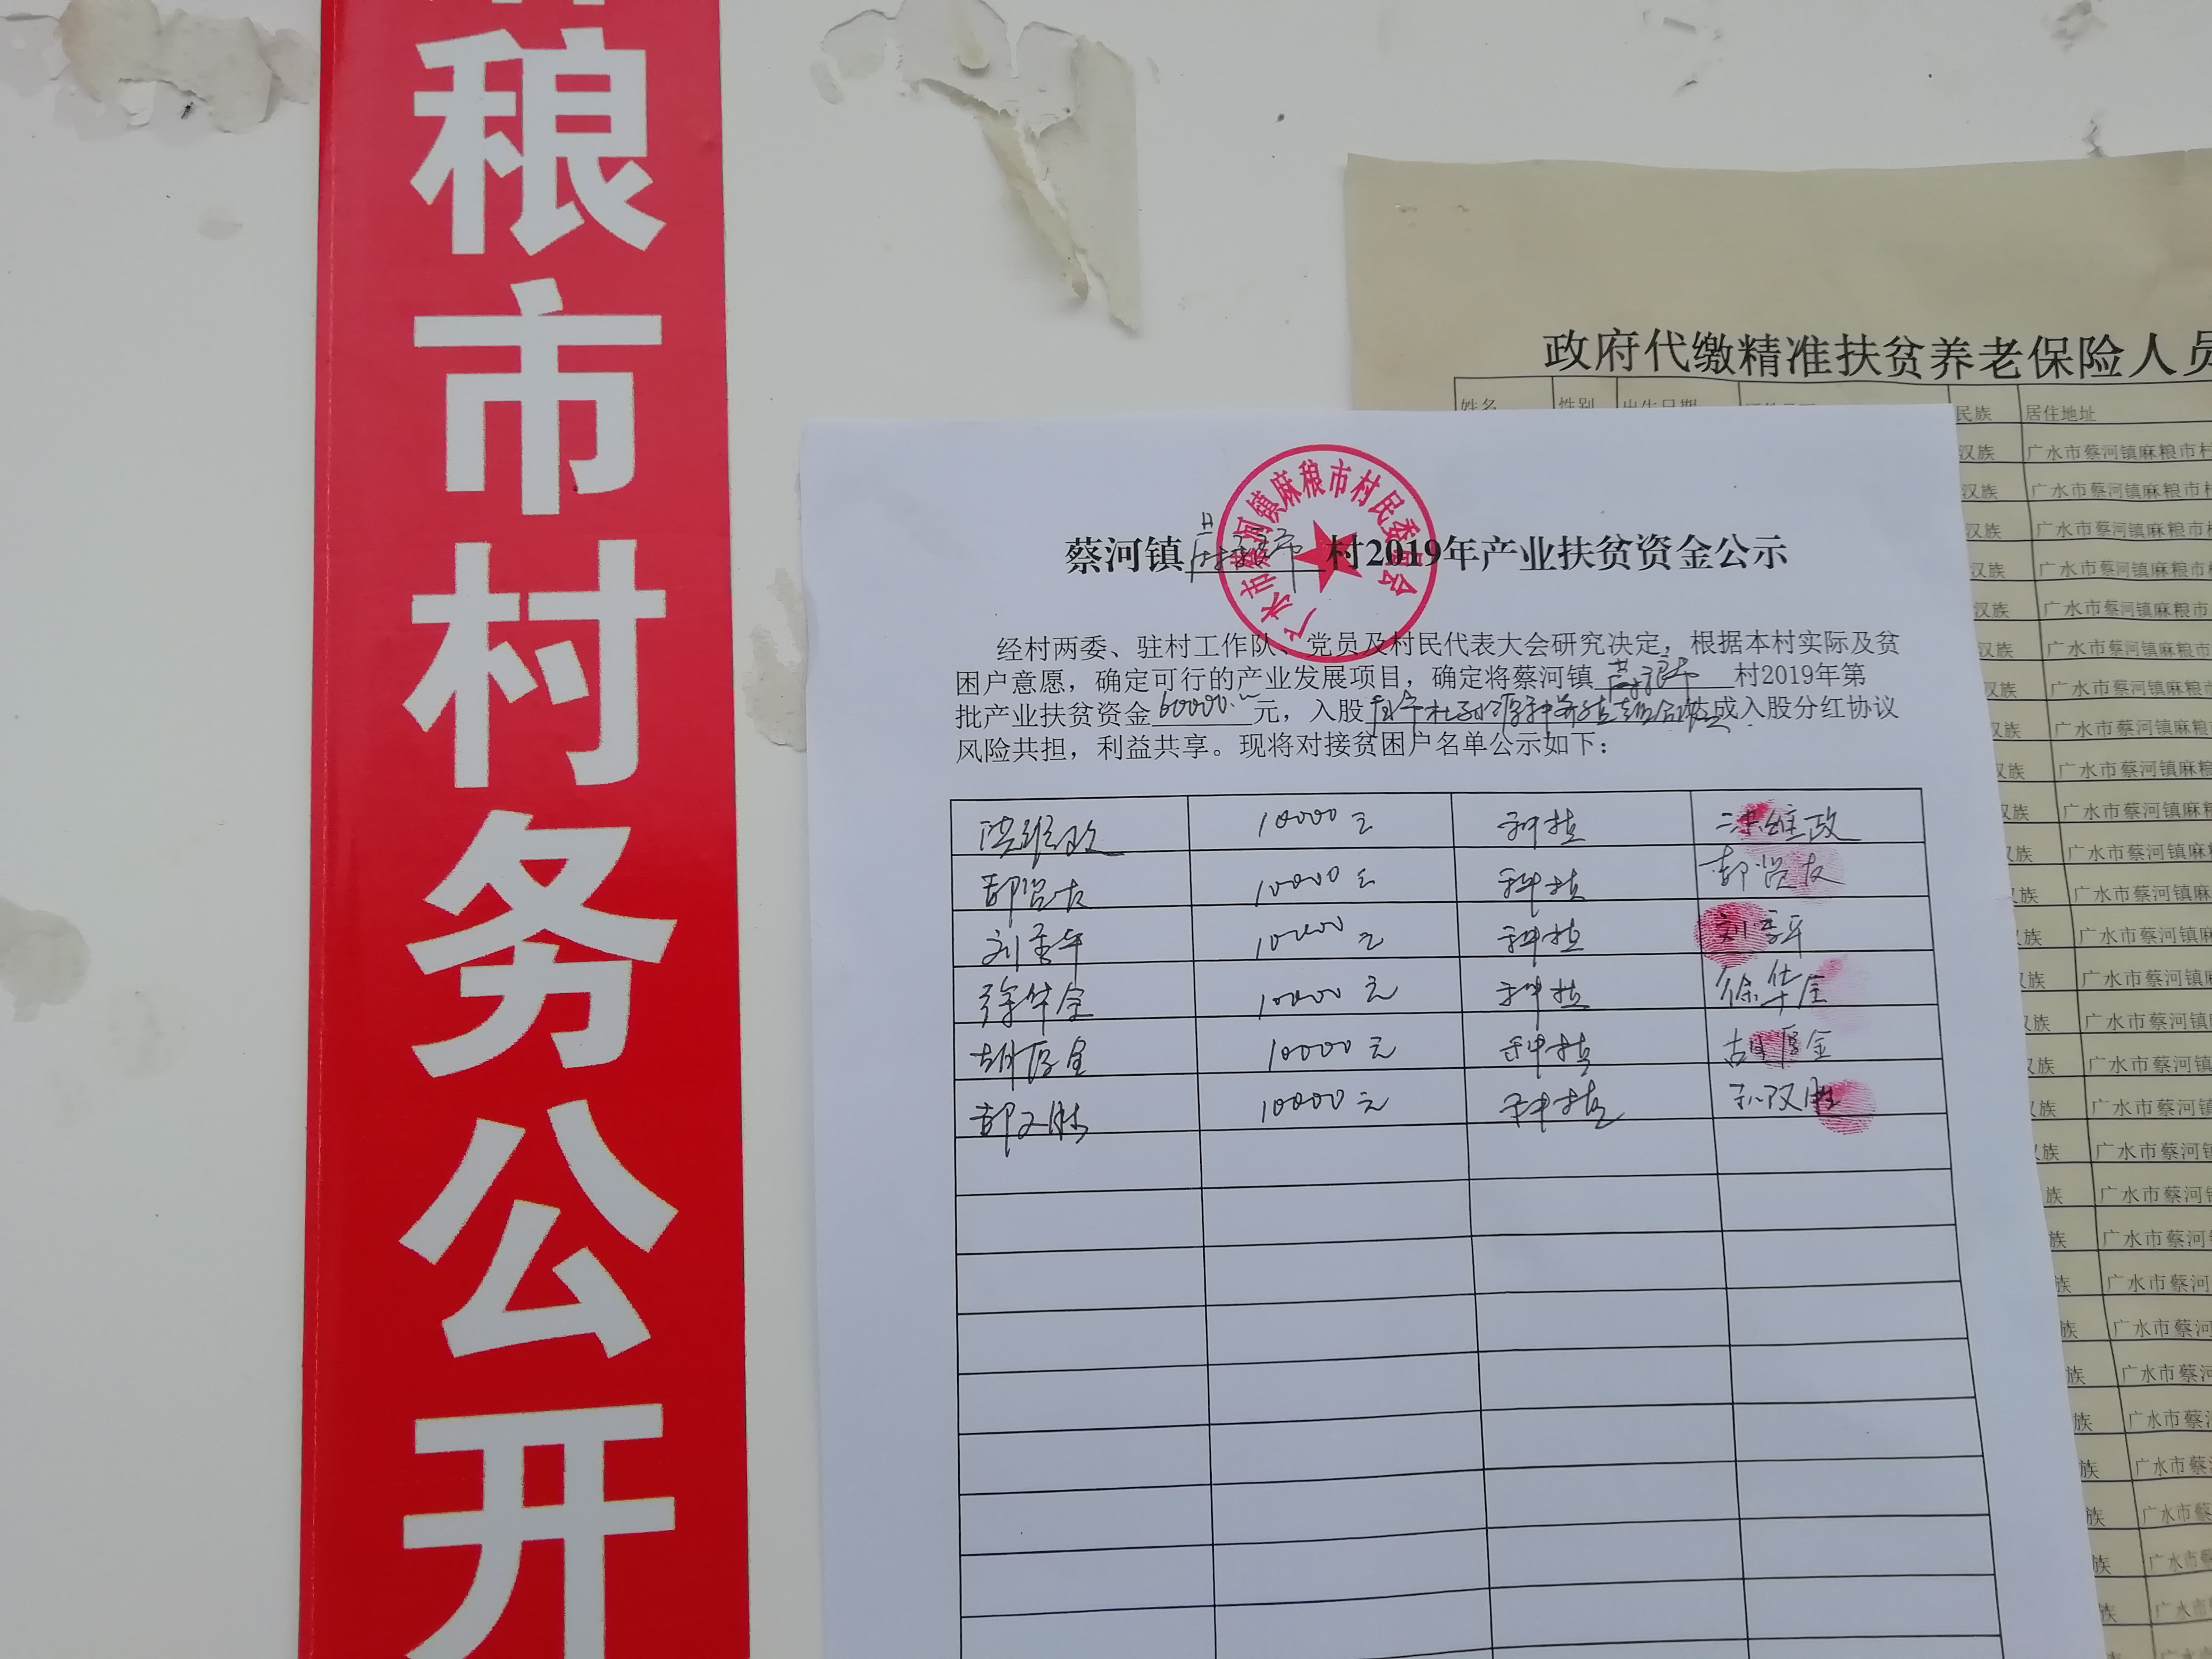 稂市村务公开
政府代缴精准扶贫养老保险人员
姓名 性别 出生日期 民族 居住地址
汉族 广水市蔡河镇麻稂市村
汉族 广水市蔡河镇麻稂市村
汉族 广水市蔡河镇麻稂市
汉族 广水市蔡河镇麻稂市
汉族 广水市蔡河镇麻稂市
汉族 广水市蔡河镇麻稂市
汉族 广水市蔡河镇麻稂市
汉族 广水市蔡河镇麻稂市
汉族 广水市蔡河镇麻稂
汉族 广水市蔡河镇麻稂
汉族 广水市蔡河镇麻稂
汉族 广水市蔡河镇麻稂
族 广水市蔡河镇麻
族 广水市蔡河镇麻
汉族 广水市蔡河镇
汉族 广水市蔡河镇
汉族 广水市蔡河镇
汉族 广水市蔡河镇
族 广水市蔡河镇
族 广水市蔡河镇
族 广水市蔡河
族 广水市蔡河
族 广水市蔡河
族 广水市蔡河
族 广水市蔡河
族 广水市蔡
族 广水市蔡
族 广水市
广水市蔡河镇麻稂市村民委员会
蔡河镇麻稂市村2019年产业扶贫资金公示
经村两委、驻村工作队、党员及村民代表大会研究决定，根据本村实际及贫
困户意愿，确定可行的产业发展项目，确定将蔡河镇麻稂市村2019年第
批产业扶贫资金60000.00元，入股 达成入股分红协议
风险共担，利益共享。现将对接贫困户名单公示如下：
维政 10000元 种植 维政
彭贤友 10000元 种植 彭贤友
刘 10000元 种植 刘 平
徐华金 10000元 种植 徐华金
胡厚金 10000元 种植 胡厚金
胜 10000元 种植 胜